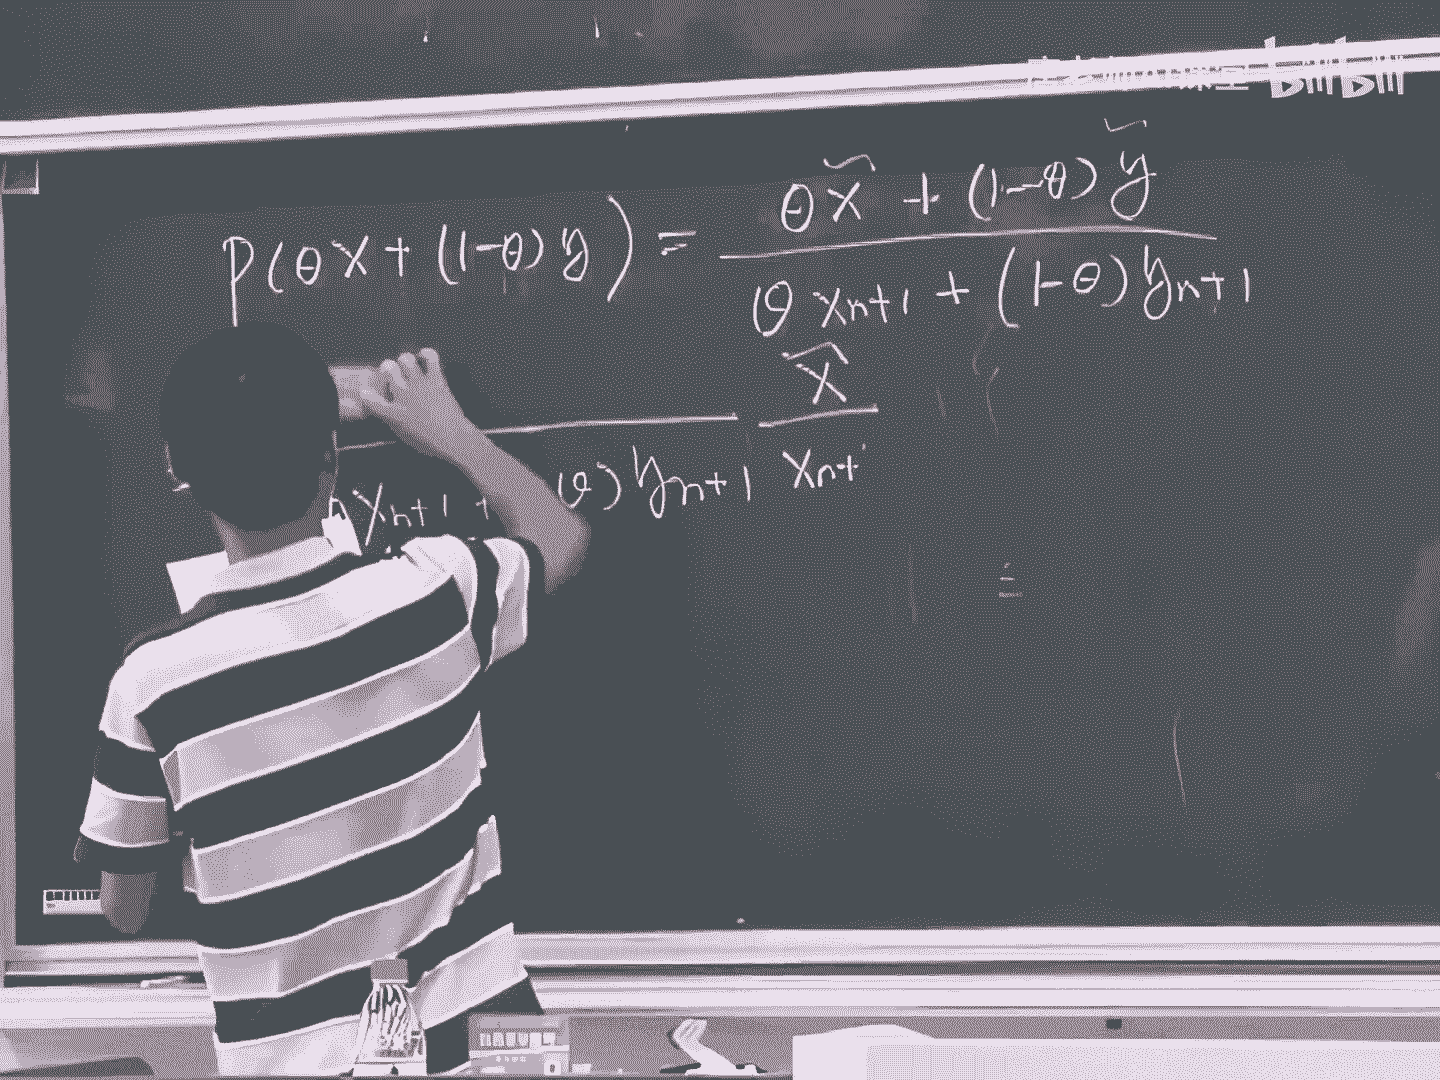 课堂 bilibili
P(θx + (1-θ)y) = θx̃ + (1-θ)ỹ
θxn+1 + (1-θ)yn+1
x̃
xn+1 + θ)yn+1 xn+1